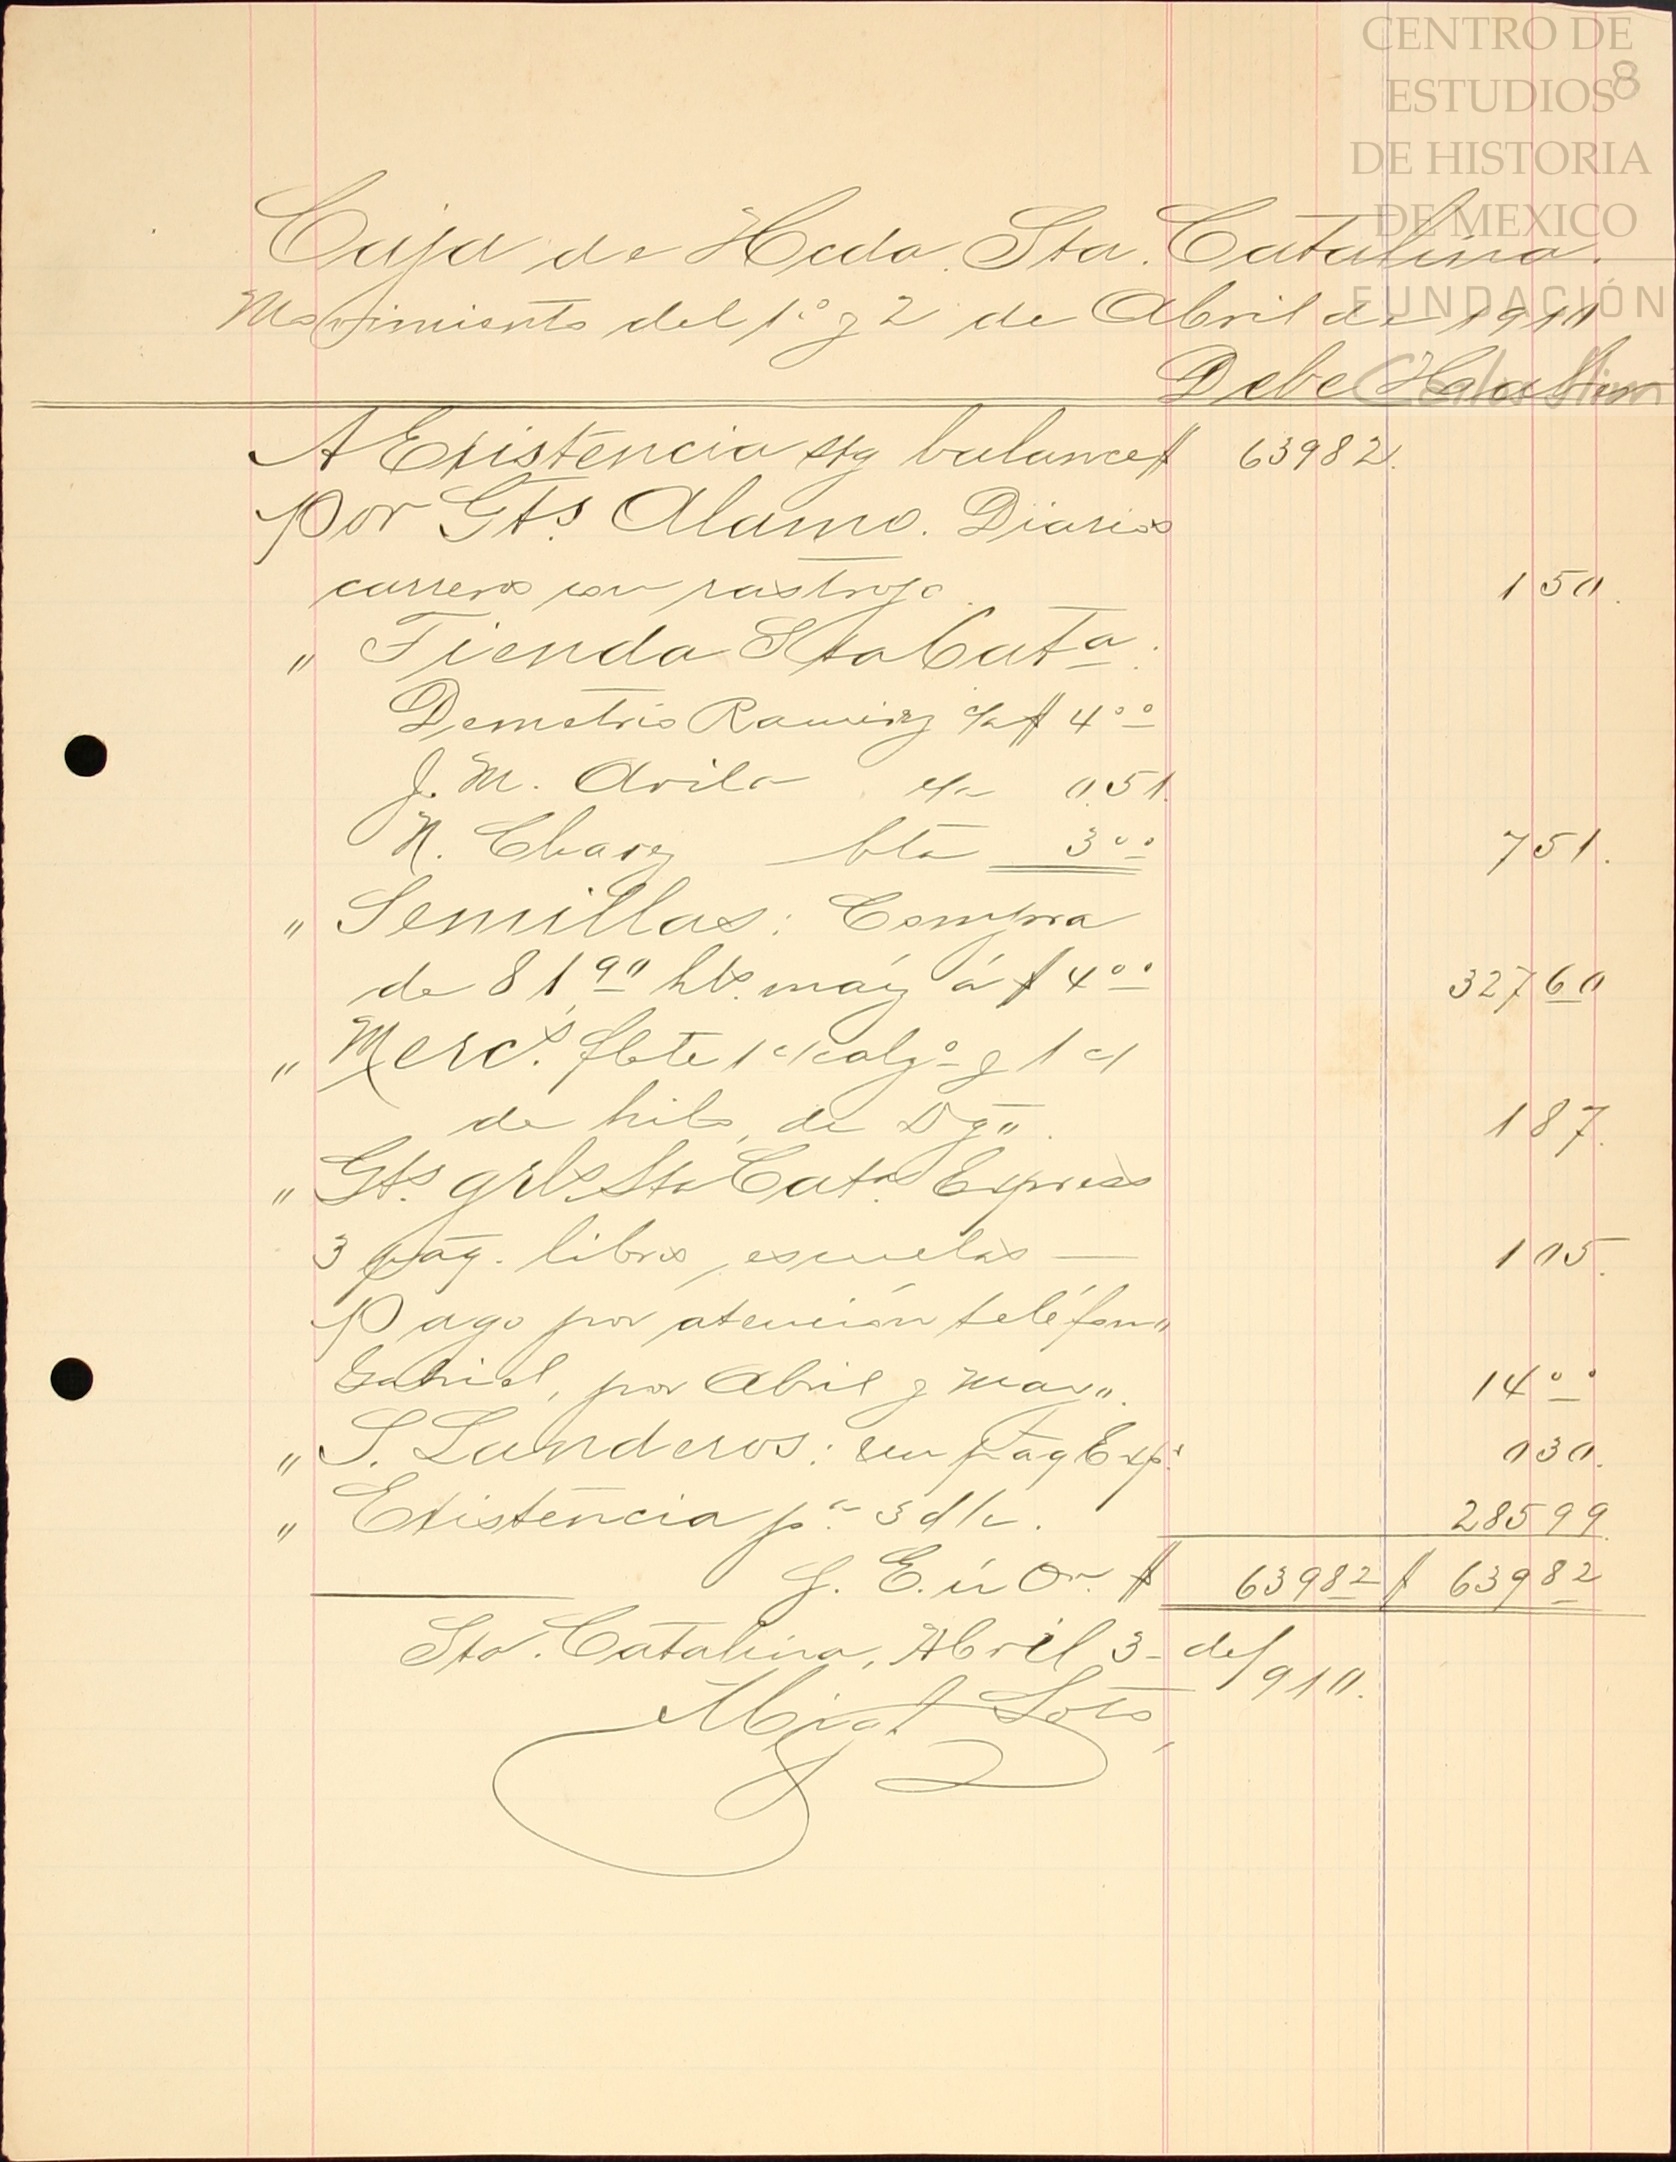 CENTRO DE
ESTUDIOS 8
DE HISTORIA
DE MEXICO
FUNDACIÓN
Carlos Slim
Caja de Hcda. Sta. Catalina.
Movimiento del 1º y 2 de Abril de 1911
Debe Haber
A Existencia sg balance $ 639 82.
Por Gts. Alamo. Diarios
carreros con rastrojo. 1 50.
" Tienda Sta Cata.
Demetrio Ramirez c/a $ 4 00
J. M. Avila c/a 0.51.
N. Chavez bta 3 00 7 51.
" Semillas: Compra
de 81 90 hts. maíz á $ 4 00 327 60
" Mercs. flete 1 c/ calzo y 1 c/
de hilo, de Dgo. 1 87.
" Gts. grls. Sta Cata. Express
3 paq. libros, escuelas — 1 05.
Pago por atención teléfono
Gabriel, por Abril y Mayo. 14 00
" S. Landeros: un paq Exps. 0 30.
" Existencia pa. 3 d/c. 285 99.
S. E. ú On. $ 639 82 $ 639 82
Sta. Catalina, Abril 3 de 1911.
Migl Soto